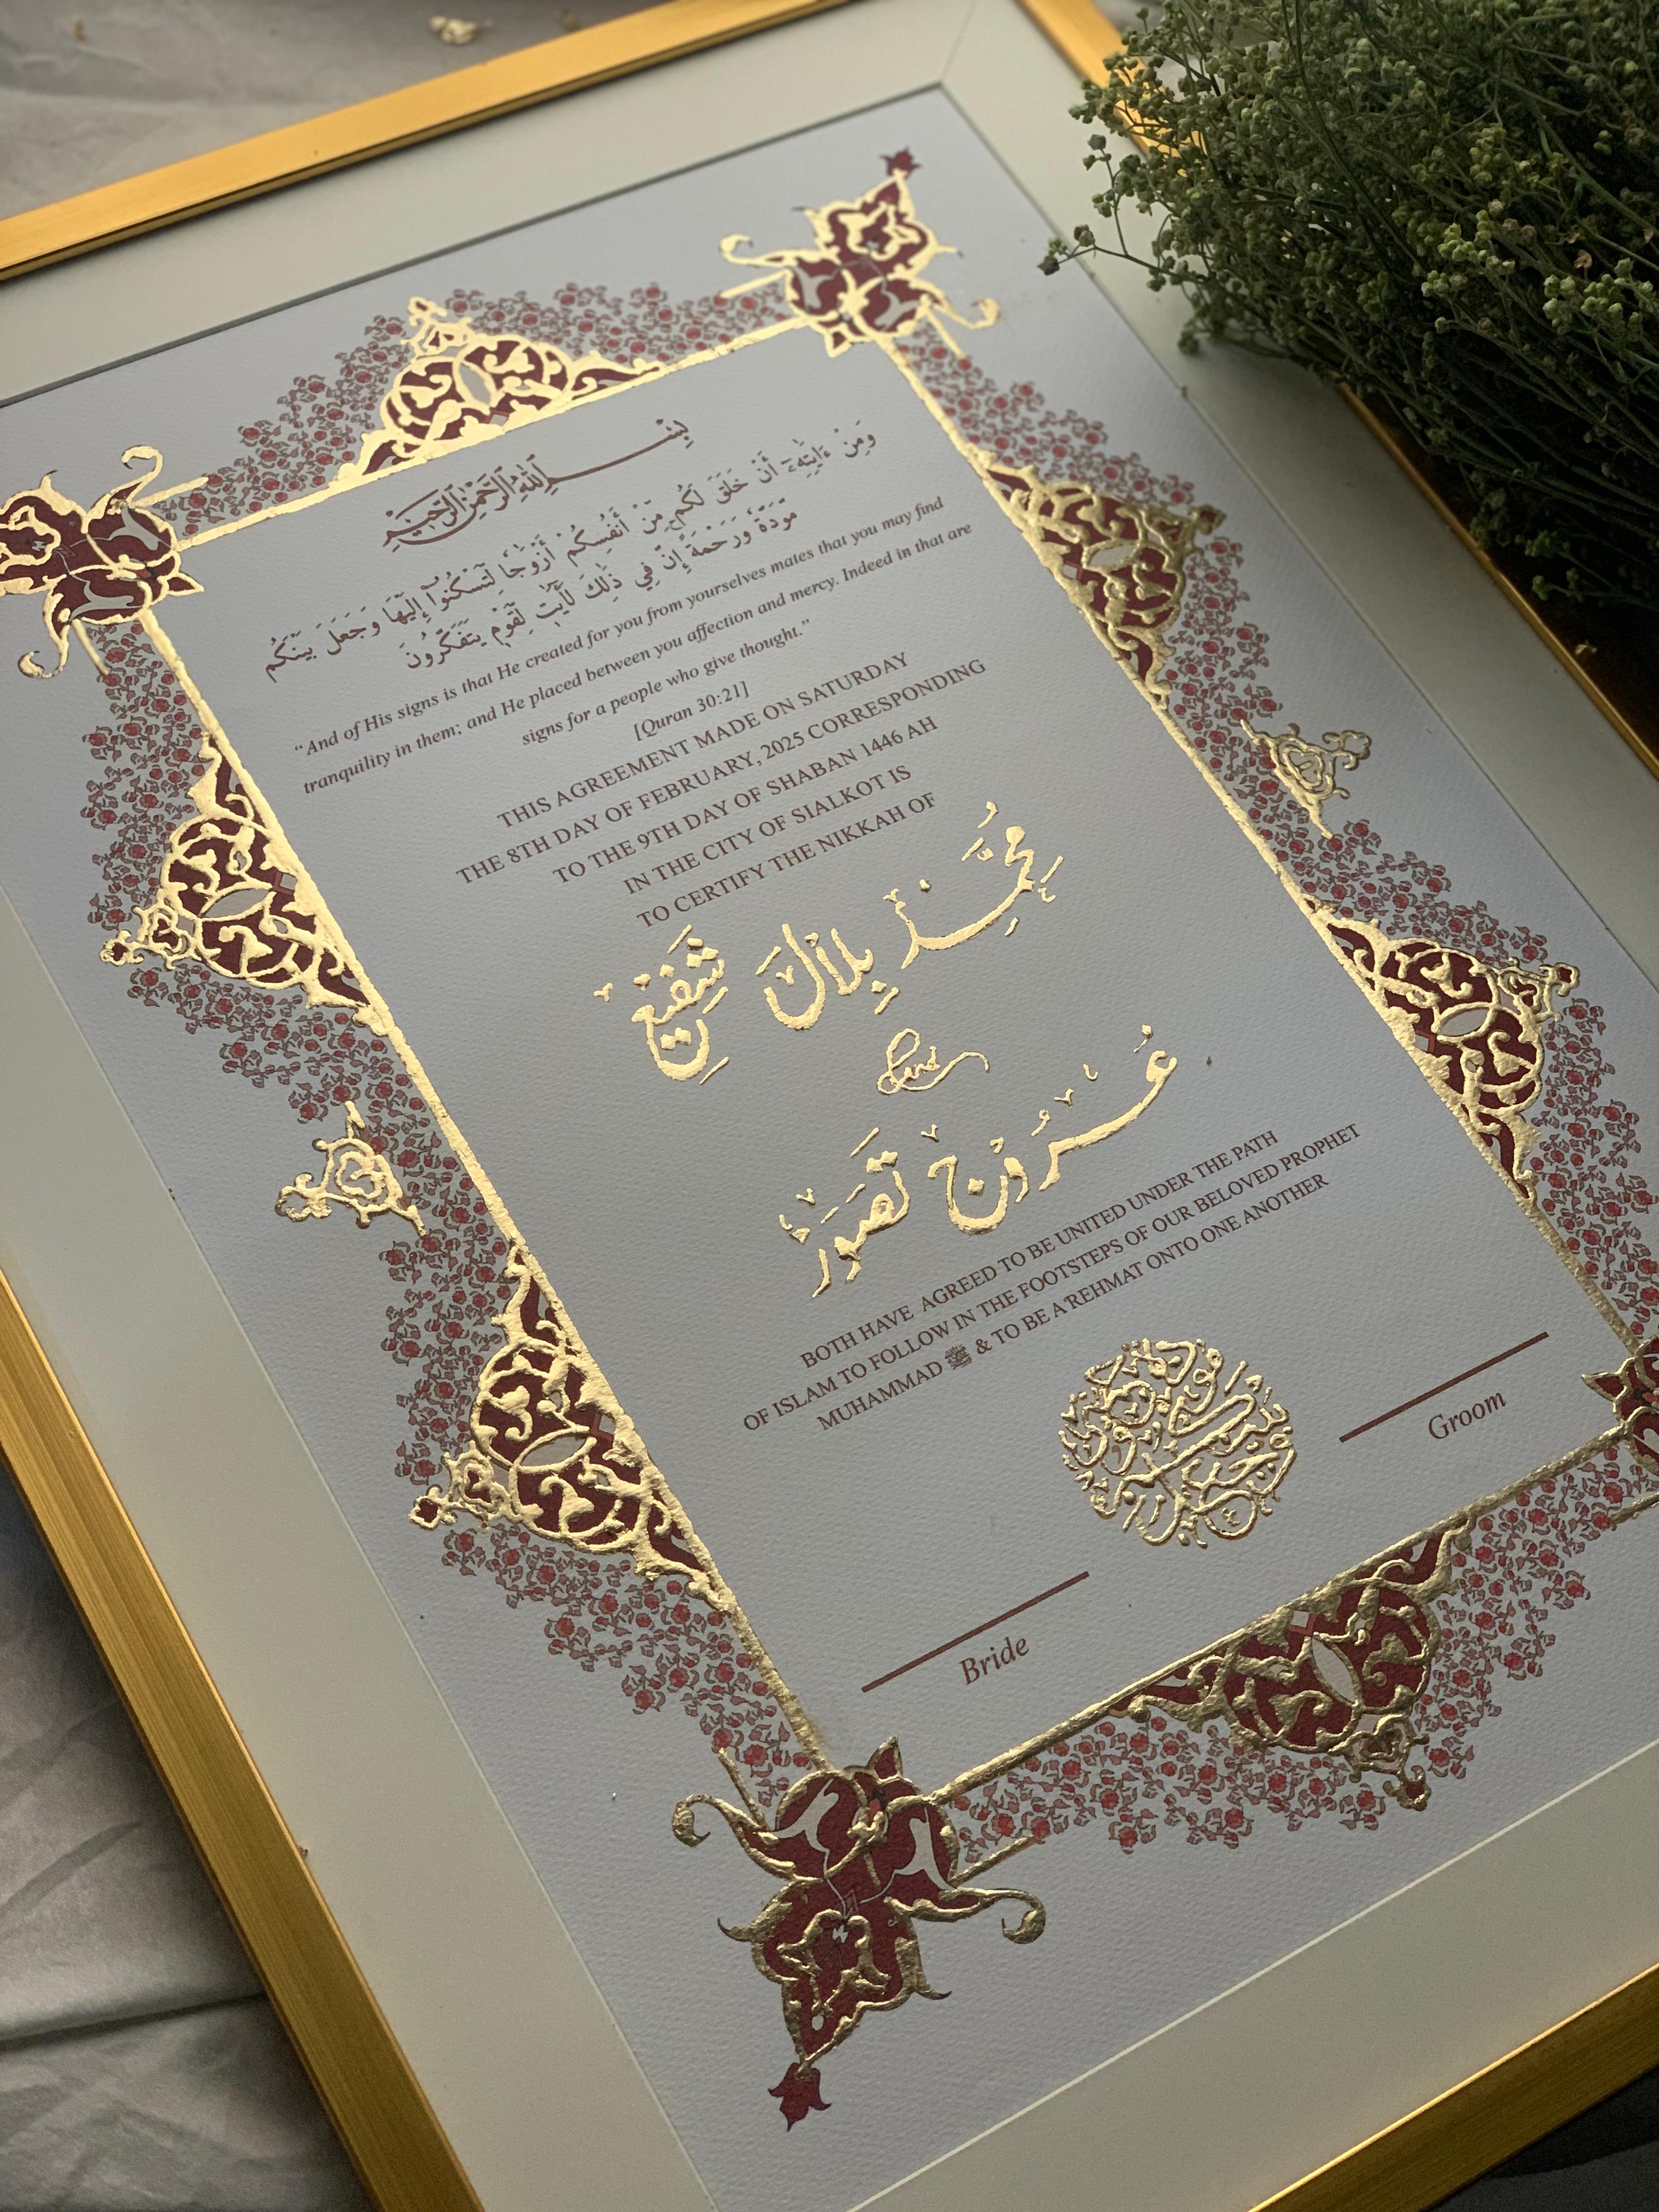 بِسْــــــمِ اللهِ الرَّحْمٰنِ الرَّحِيْمِ
وَمِنْ ءَايَٰتِهِۦٓ أَنْ خَلَقَ لَكُم مِّنْ أَنفُسِكُمْ أَزْوَٰجًا لِّتَسْكُنُوٓا۟ إِلَيْهَا وَجَعَلَ بَيْنَكُم
مَّوَدَّةً وَرَحْمَةً إِنَّ فِي ذَٰلِكَ لَآيَٰتٍ لِّقَوْمٍ يَتَفَكَّرُونَ
“And of His signs is that He created for you from yourselves mates that you may find
tranquility in them; and He placed between you affection and mercy. Indeed in that are
signs for a people who give thought.”
[Quran 30:21]
THIS AGREEMENT MADE ON SATURDAY
THE 8TH DAY OF FEBRUARY, 2025 CORRESPONDING
TO THE 9TH DAY OF SHABAN 1446 AH
IN THE CITY OF SIALKOT IS
TO CERTIFY THE NIKKAH OF
مُحَمَّد بِلَال شَفِيع
and
عُرُوج تَصَوُّر
BOTH HAVE AGREED TO BE UNITED UNDER THE PATH
OF ISLAM TO FOLLOW IN THE FOOTSTEPS OF OUR BELOVED PROPHET
MUHAMMAD ﷺ & TO BE A REHMAT ONTO ONE ANOTHER
Groom
Bride